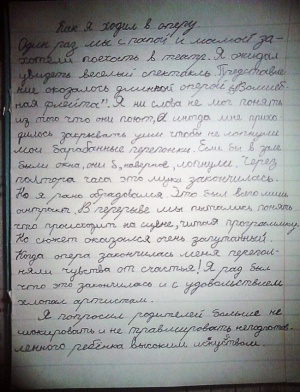 Как я ходил в оперу.
Один раз мы с папой и мамой за-
хотели поехать в театр. Я ожидал
увидеть весёлый спектакль. Представле-
ние оказалось длинной оперой „Волшеб-
ная флейта". Я ни слова не мог понять
из того что они поют, А иногда мне прихо-
дилось закрывать уши чтобы не лопнули
мои барабанные перепонки. Если бы в зале
были окна, они б, наверное, лопнули. Через
полтора часа эта мука закончилась.
Но я рано обрадовался. Это был всего лишь
антракт. В перерыве мы пытались понять
что происходит на сцене, читая программку
Но сюжет оказался очень запутанный.
Когда опера закончилась меня перепол-
няли чувства от счастья! Я рад был
что это закончилась и с удовольствием
хлопал артистам.
Я попросил родителей больше не
шокировать и не травмировать неподготов-
ленного ребёнка высоким искуством.